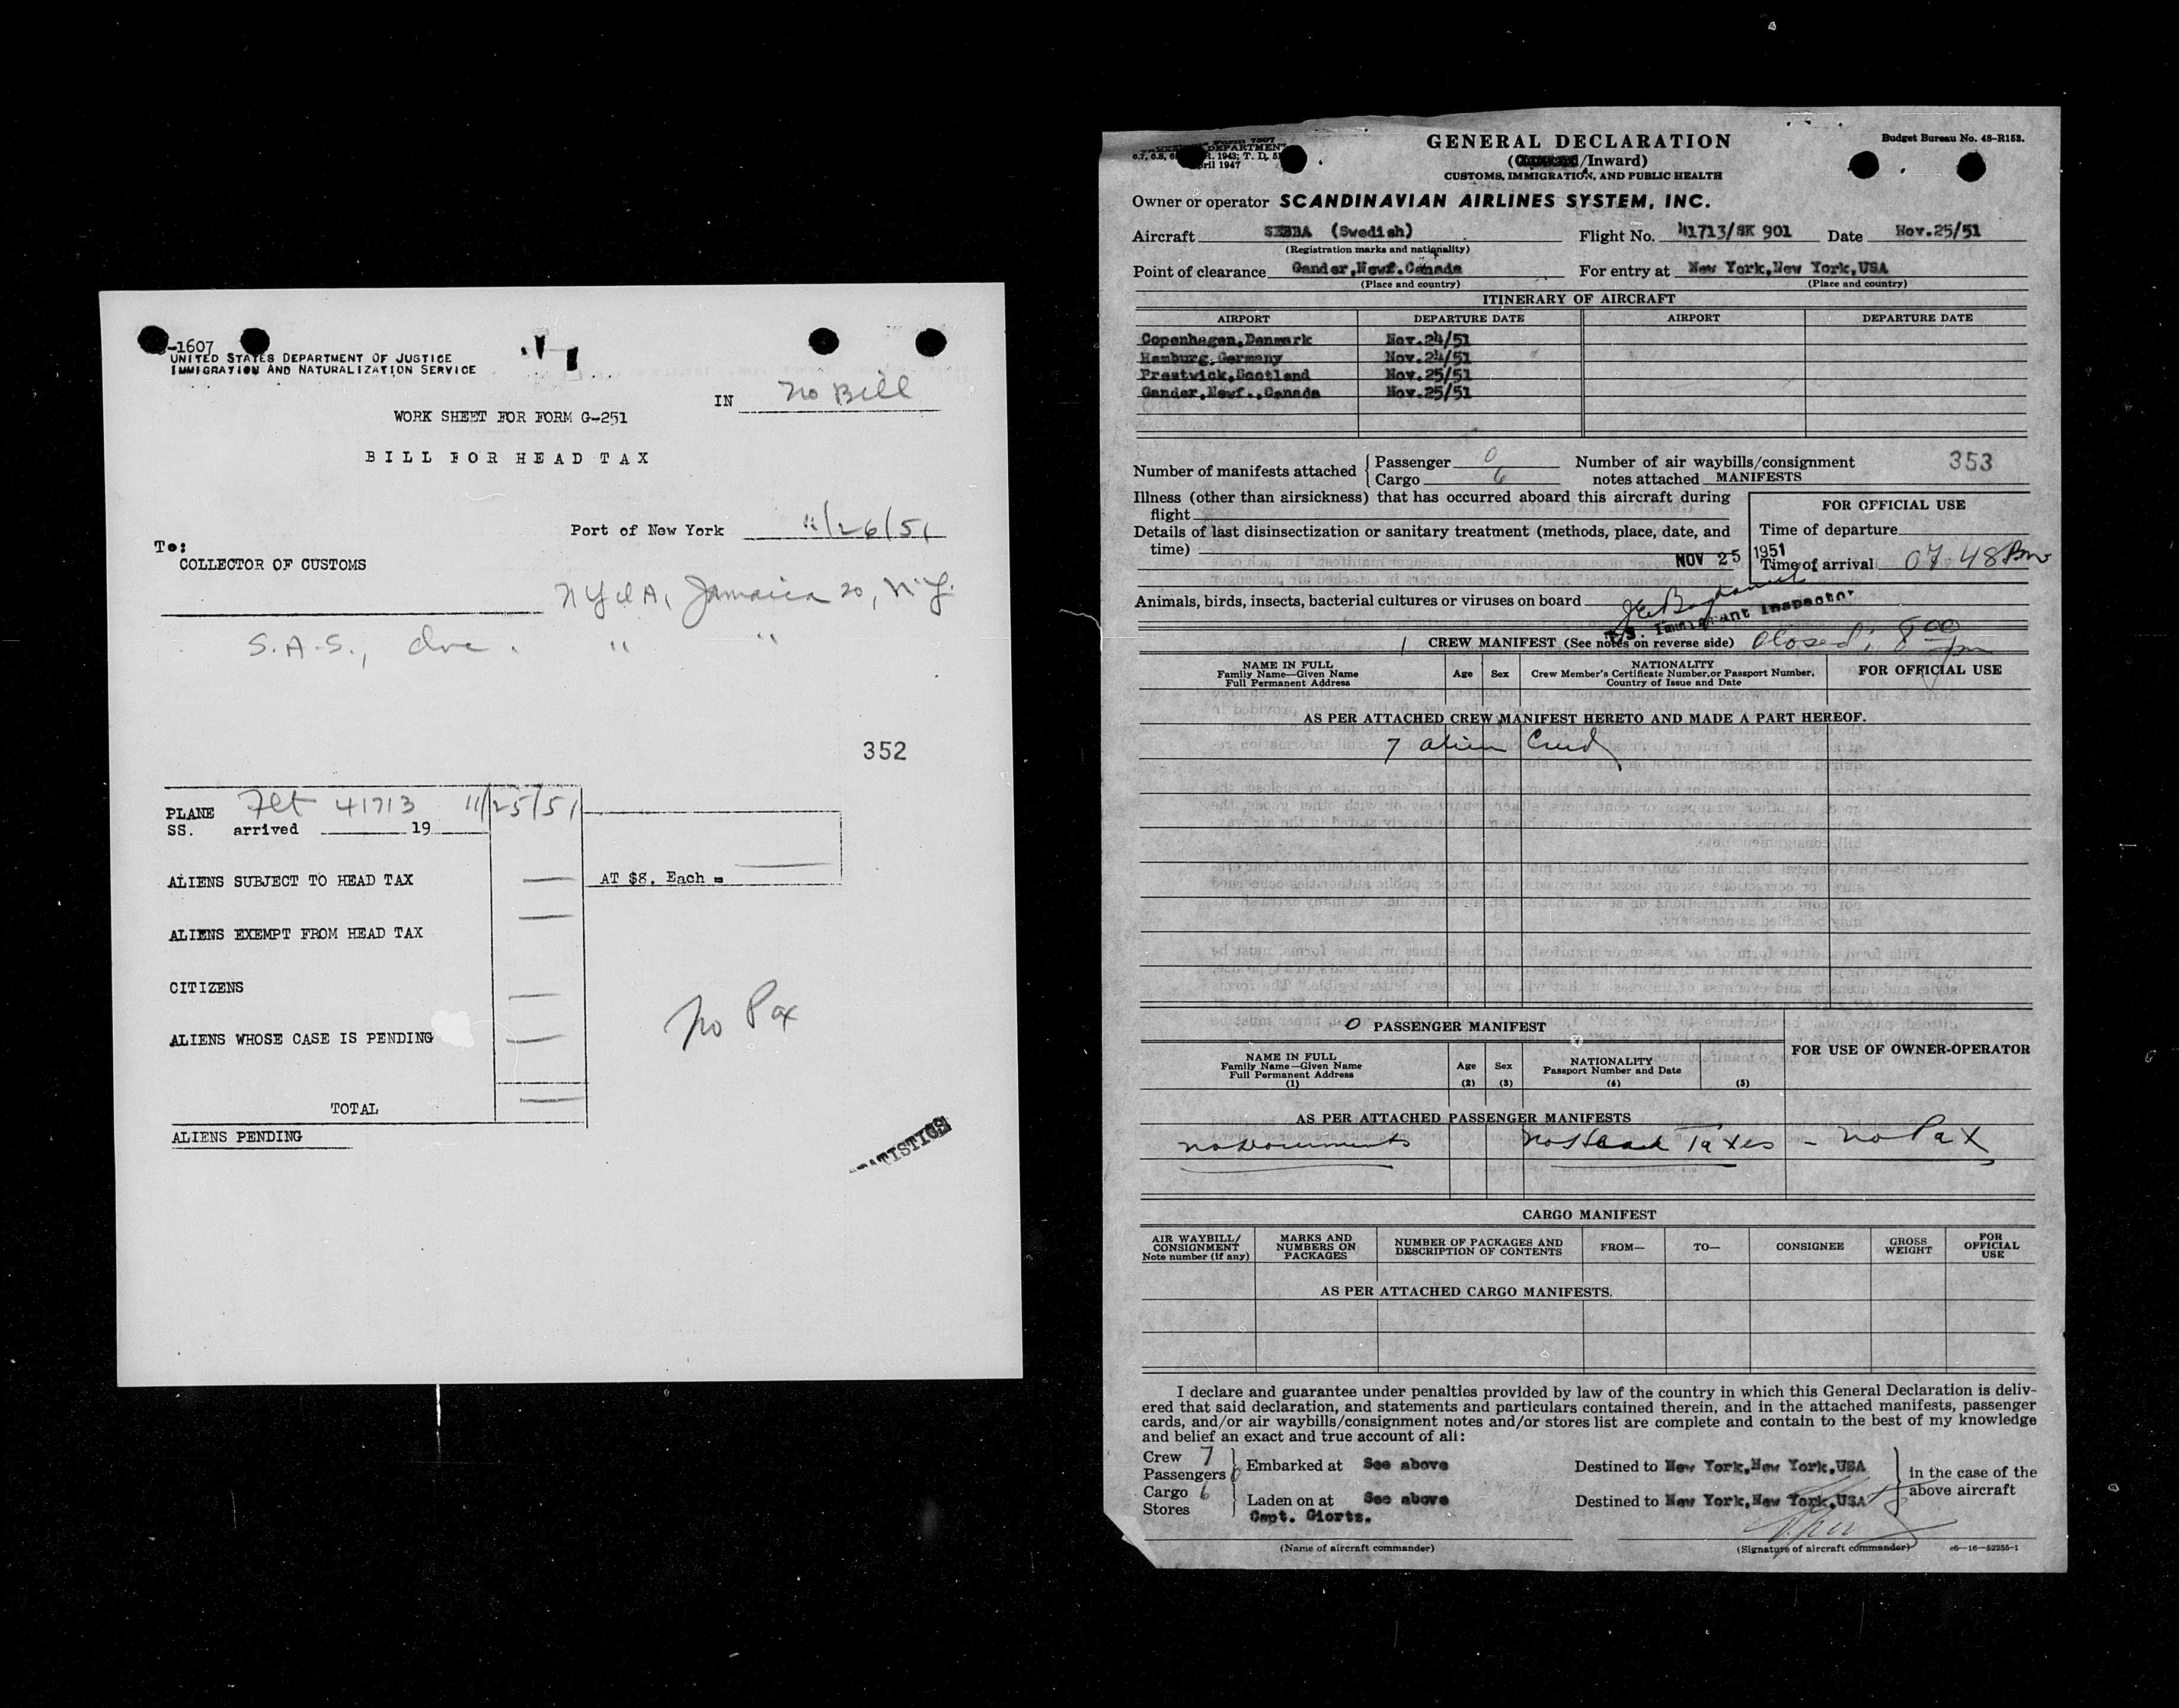 -1607
UNITED STATES DEPARTMENT OF JUSTICE
IMMIGRATION AND NATURALIZATION SERVICE
IN no Bill
WORK SHEET FOR FORM G-251
BILL FOR HEAD TAX
Port of New York 11/26/51
To:
COLLECTOR OF CUSTOMS
Jamaica 20, N.Y.
S.A.S., " "
352
PLANE Flt 41713 11/25/51
SS. arrived 19
ALIENS SUBJECT TO HEAD TAX — AT $8. Each = —
ALIENS EXEMPT FROM HEAD TAX —
CITIZENS —
ALIENS WHOSE CASE IS PENDING —
no Pax
TOTAL —
ALIENS PENDING
TISTICS
Form 7507
DEPARTMENT
1943; T. D. 
ril 1947
GENERAL DECLARATION
Budget Bureau No. 48-R153.
(/Inward)
CUSTOMS, IMMIGRATION, AND PUBLIC HEALTH
Owner or operator SCANDINAVIAN AIRLINES SYSTEM, INC.
Aircraft (Swedish) Flight No. 41713/SK 901 Date Nov.25/51
(Registration marks and nationality)
Point of clearance Gander,Newf.Canada For entry at New York,New York,USA
(Place and country) (Place and country)
ITINERARY OF AIRCRAFT
AIRPORT DEPARTURE DATE AIRPORT DEPARTURE DATE
Copenhagen,Denmark Nov.24/51
Hamburg,Germany Nov.24/51
Prestwick,Scotland Nov.25/51
Gander,Newf.,Canada Nov.25/51
Number of manifests attached { Passenger 0 Number of air waybills/consignment 353
Cargo 6 notes attached MANIFESTS
Illness (other than airsickness) that has occurred aboard this aircraft during
flight
FOR OFFICIAL USE
Details of last disinsectization or sanitary treatment (methods, place, date, and
time)
Time of departure
NOV 25 1951
Time of arrival 07 48 Pm
Animals, birds, insects, bacterial cultures or viruses on board
U.S. Immigrant Inspector
1 CREW MANIFEST (See notes on reverse side) Closed: 8 00 pm
NAME IN FULL
Family Name—Given Name
Full Permanent Address
Age Sex
NATIONALITY
Crew Member's Certificate Number, or Passport Number,
Country of Issue and Date
FOR OFFICIAL USE
AS PER ATTACHED CREW MANIFEST HERETO AND MADE A PART HEREOF.
7 alien Crew
0 PASSENGER MANIFEST
FOR USE OF OWNER-OPERATOR
NAME IN FULL
Family Name—Given Name
Full Permanent Address
(1)
Age
(2)
Sex
(3)
NATIONALITY
Passport Number and Date
(4) (5)
AS PER ATTACHED PASSENGER MANIFESTS
no Documents no Head Taxes - no Pax
CARGO MANIFEST
AIR WAYBILL/
CONSIGNMENT
Note number (if any)
MARKS AND
NUMBERS ON
PACKAGES
NUMBER OF PACKAGES AND
DESCRIPTION OF CONTENTS
FROM— TO— CONSIGNEE
GROSS
WEIGHT
FOR
OFFICIAL
USE
AS PER ATTACHED CARGO MANIFESTS.
I declare and guarantee under penalties provided by law of the country in which this General Declaration is deliv-
ered that said declaration, and statements and particulars contained therein, and in the attached manifests, passenger
cards, and/or air waybills/consignment notes and/or stores list are complete and contain to the best of my knowledge
and belief an exact and true account of all:
Crew 7
Passengers 0
Embarked at See above Destined to New York,New York,USA
in the case of the
above aircraft
Cargo 6
Stores
Laden on at See above Destined to New York,New York,USA
Capt. Giortz.
(Name of aircraft commander) (Signature of aircraft commander) c6—16—52255-1